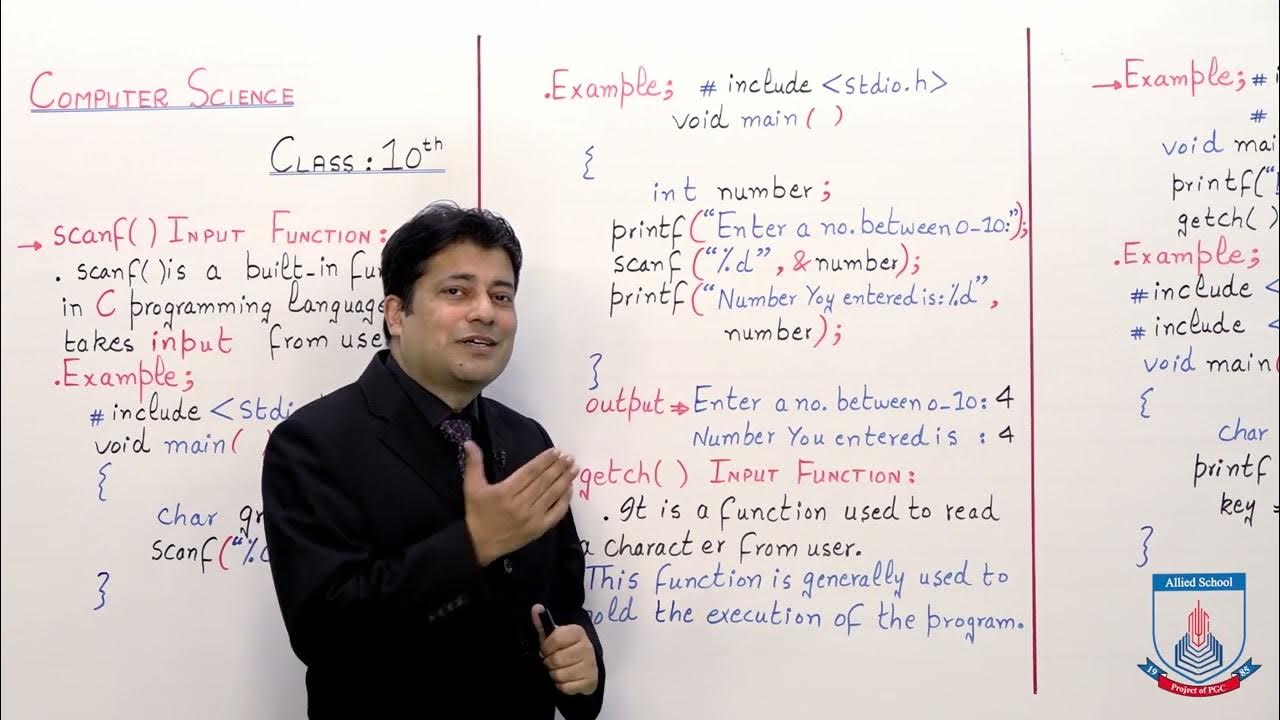 COMPUTER SCIENCE
CLASS: 10th
→ scanf() INPUT FUNCTION:
. scanf() is a built-in
in C programming language
takes input from
.Example;
# include <stdio.
void main( )
{
char
scanf("%
}
.Example; # include <stdio.h>
void main( )
{
int number;
printf("Enter a no. between 0-10:");
scanf ("%d", &number);
printf("Number You entered is:%d",
number);
}
output → Enter a no. between 0-10: 4
Number You entered is : 4
getch( ) INPUT FUNCTION:
. It is a function used to read
a character from user.
This function is generally used to
hold the execution of the program.
→ Example; #
#
void mai
printf("
getch( )
.Example;
# include <
# include <
void main(
{
char
printf
key =
}
Allied School
19 85
Project of PGC